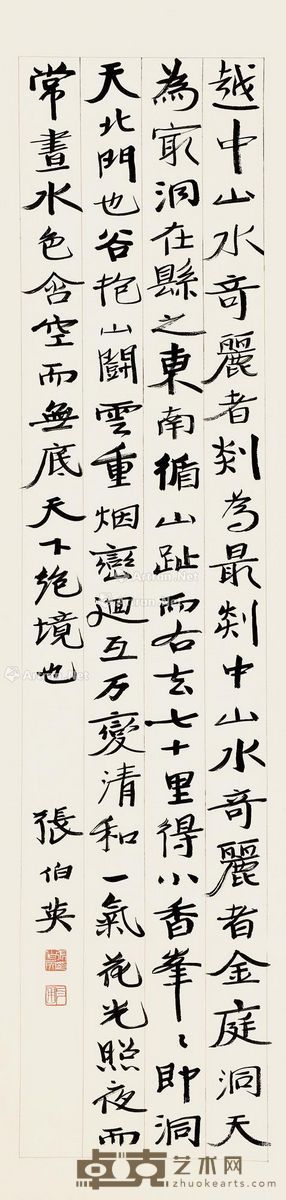 越中山水竒麗者剡為最剡中山水竒麗者金庭洞天
為冣洞在縣之東南循山趾而右去七十里得小香峯〻即洞
天北門也谷抱山鬭雲重烟巒迴互万變清和一氣花光照夜而
常晝水色含空而無底天下絶境也
張伯英
卓克艺术网
zhuokearts.com